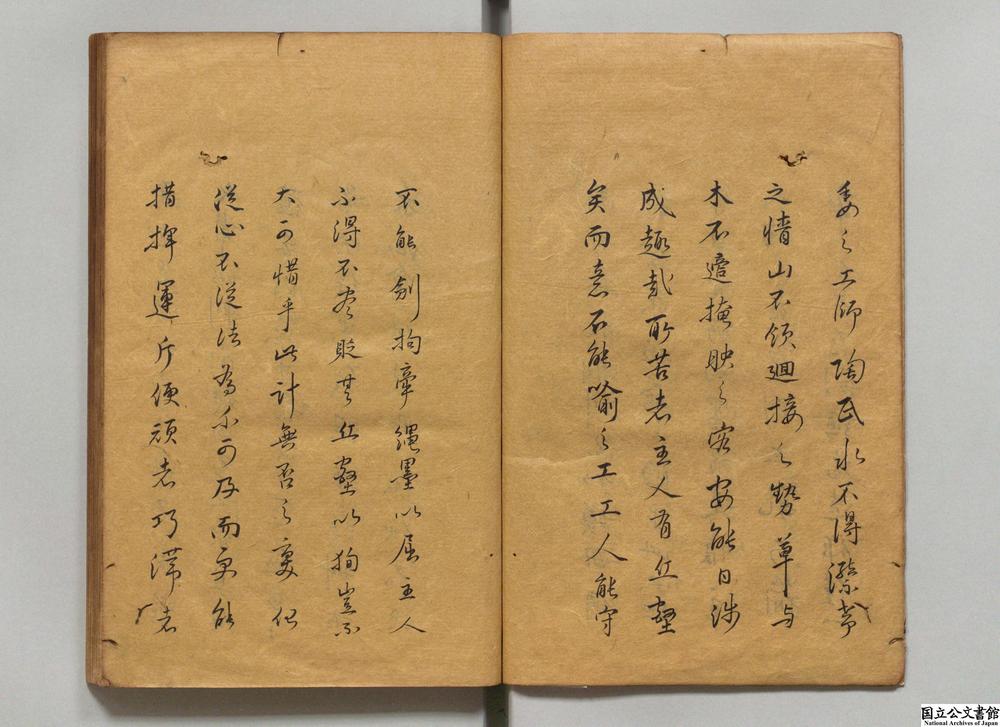 委之工師陶氏水不得瀠帶
之情山不領迴接之勢草与
木不適掩映之容安能日涉
成趣哉所苦者主人有丘壑
矣而意不能喻之工工人能守
不能創拘牽繩墨以屈主人
不得不盡貶其丘壑以狥豈不
大可惜乎此計無否之變化
從心不從法為不可及而更能
指揮運斤使頑者巧滯者
国立公文書館
National Archives of Japan